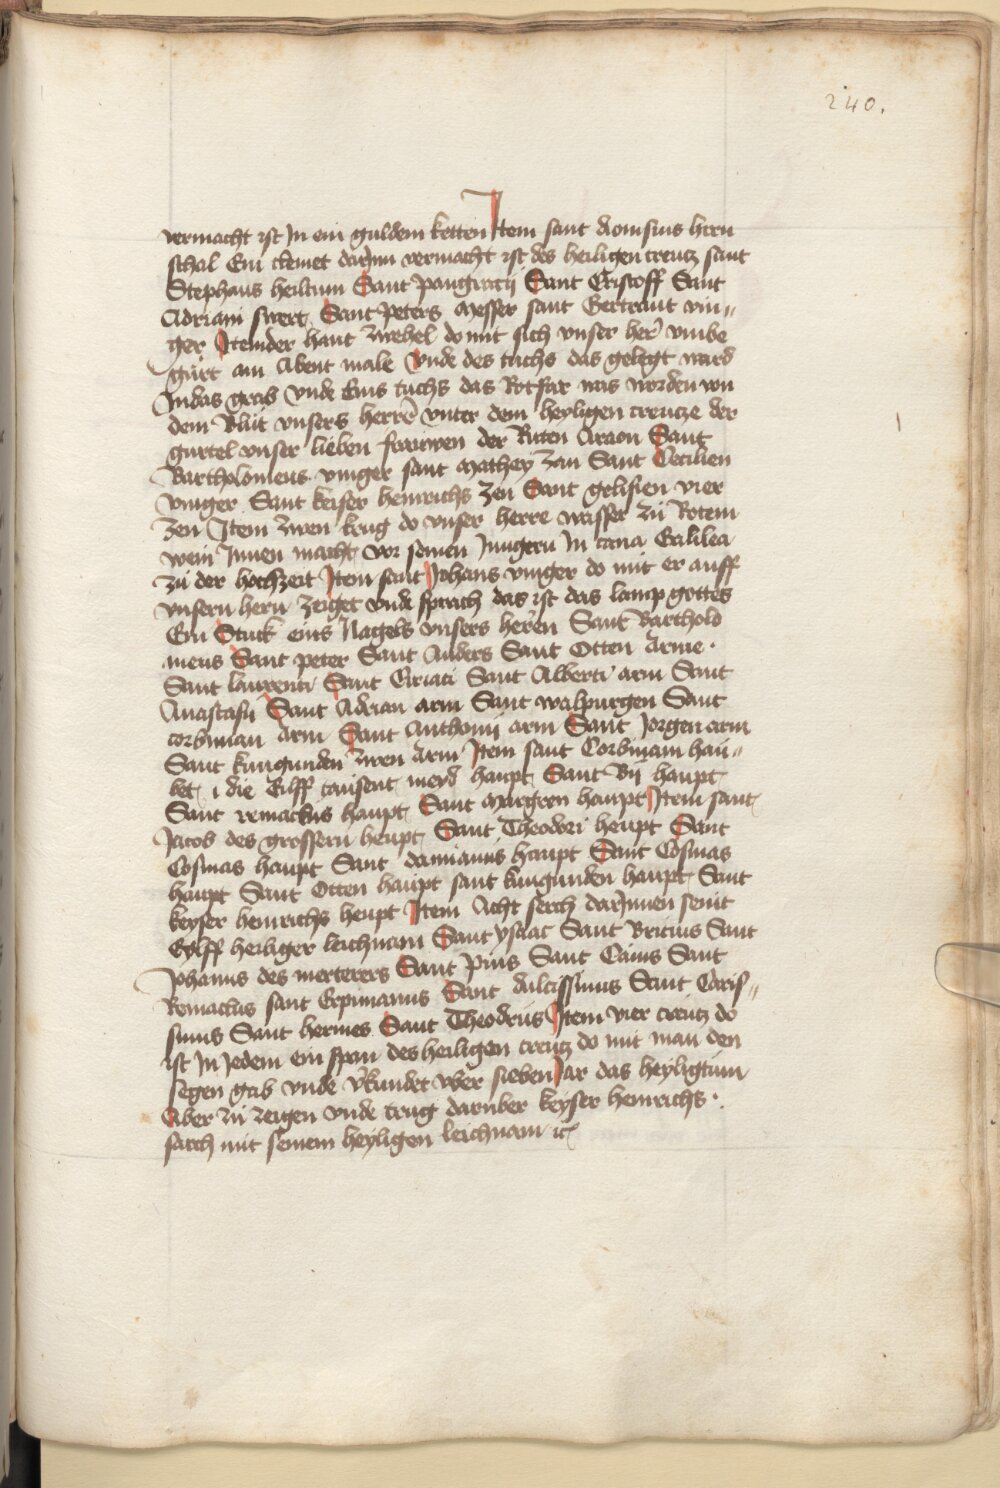 240.
vermacht ist Jn ein guldem ketten Jtem sant dionisius hirn
schal Ein clemet dar Jnn vermacht ist des heiligen creutz sant
Stephans heiltum Sant pangracij Sant Cristoff Sant
Adriani swert Sant Peters messer sant Gertraut vin„
ger Jtem der hant zwehel do mit sich vnser her vmbe
gurt am Abent male Vnde des tuchs das gelegt ward
Jn das grab vnde Eins tuchs das Rotfar was worden von
dem Blut vnsers herrē vnter dem heyligen creutze der
gurtel vnser lieben frauwen der Ruten Araon Sant
Bartholomeus vinger sant Mathey zan Sant Cecilien
vinger Sant keiser heinrichs zen Sant gelisien vier
zen Jtem zwen krug do vnser herre wasser zu Rotem
wein Jnnen macht vor seinen Jungern Jn cana Galilea
zu der hochzeit Jtem sant Johans vinger do mit er auff
vnsern hern zeiget vnde sprach das ist das lamp gottes
Ein Stuck eins Nagels vnsers herren Sant Barthold
meus Sant peter Sant Anders Sant Otten Arme.
Sant laurenti Sant Ciriaci Sant Alberti arm Sant
Anastasij Sant Adrian arm Sant walpurgen Sant
corbinian Arm Sant Anthonij arm Sant Jorgen arm
Sant kungunden zwen Arm Jtem sant Corbiniam hau„
bet i die Eilff tausent meyd haupt Sant Vij haupt
Sant remaclus haupt Sant margreen haupt Jtem sant
Jacob des grossern heupt Sant Theodori heupt Sant
Cosmas haupt Sant damianus haupt Sant Cosmas
haupt Sant Otten haupt sant kungunden haupt Sant
keyser heinrichs heupt Jtem Acht serch dar Jnnen seint
Eylff heiliger leichnam Sant ysaac Sant Bricius Sant
Johannis des merterers Sant Pius Sant Caius Sant
Remaclus sant Erpimanus Sant dulcissimus Sant Caris„
simus Sant hermes Sant Theodrus Jtem vier creutz do
ist Jn Jedem ein span des heiligen creutz do mit man den
segen gab vnde v̓kundet vber sieben Jar das heyligtum
Aber zu zeigen vnde trug daruber keyser heinrichs.
sarch mit seinem heyligen leichnam ꝛc